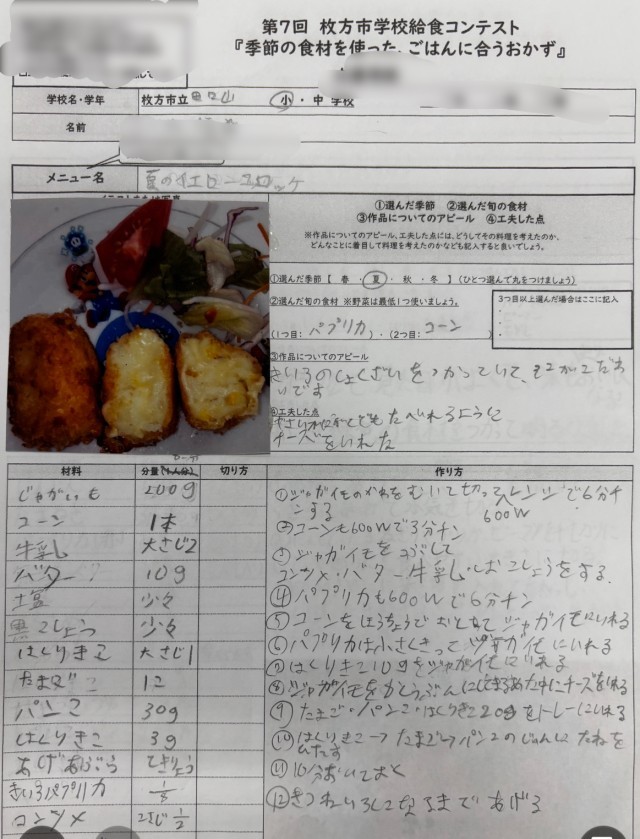 第7回 枚方市学校給食コンテスト
『季節の食材を使った、ごはんに合うおかず』
学校名・学年 枚方市立 小・中 学校
名前
メニュー名 夏のイエローコロッケ
①選んだ季節 ②選んだ旬の食材
③作品についてのアピール ④工夫した点
※作品についてのアピール、工夫した点には、どうしてその料理を考えたのか、
どんなことに着目して料理を考えたのかなども記入すると良いでしょう。
①選んだ季節【 春・夏・秋・冬 】(ひとつ選んで丸をつけましょう)
②選んだ旬の食材 ※野菜は最低1つ使いましょう。
3つ目以上選んだ場合はここに記入
(1つ目: パプリカ )・(2つ目: コーン )
③作品についてのアピール
きいろのしょくざいをつかっていて、そこがこだわ
いです
④工夫した点
たべれるように
チーズをいれた
材料 分量(1人分) 切り方 作り方
じゃがいも 200g
コーン 1本
牛乳 大さじ2
バター 10g
塩 少々
黒こしょう 少々
はくりきこ 大さじ1
たまご 1こ
パンこ 30g
はくりきこ 3g
あげあぶら てきりょう
きいろパプリカ
コンソメ 1/2
①ジャガイモのかわをむいて切ってレンジで6分チ
ンする 600W
②コーンも600Wで3分チン
③ジャガイモをつぶして
コンソメ・バター牛乳・しおこしょうをする
④パプリカも600Wで6分チン
⑤コーンをほうちょうで ジャガイモにいれる
⑥パプリカは小さくきってジャガイモにいれる
⑦はくりきこ10gをジャガイモにいれる
⑧ジャガイモを 中にチーズをいれる
⑨たまご・パンこ・はくりきこ20gをトレーにいれる
⑩はくりきこ→たまご→パンこのじゅんにたねを
⑪10分おいておく
⑫きつねいろになるまであげる